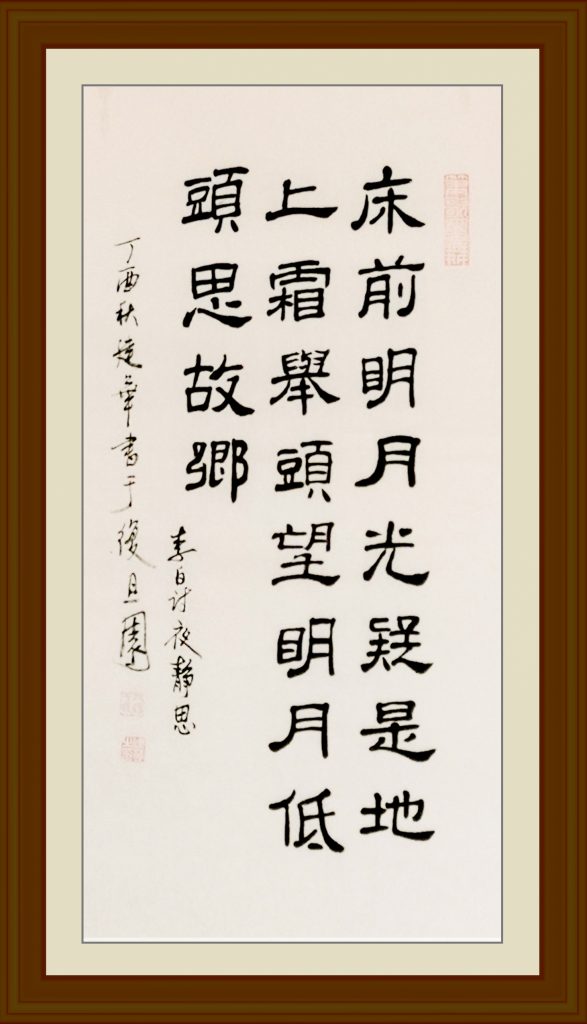 床前明月光疑是地
上霜舉頭望明月低
頭思故鄉
李白詩夜靜思
丁酉秋建華書于復旦園